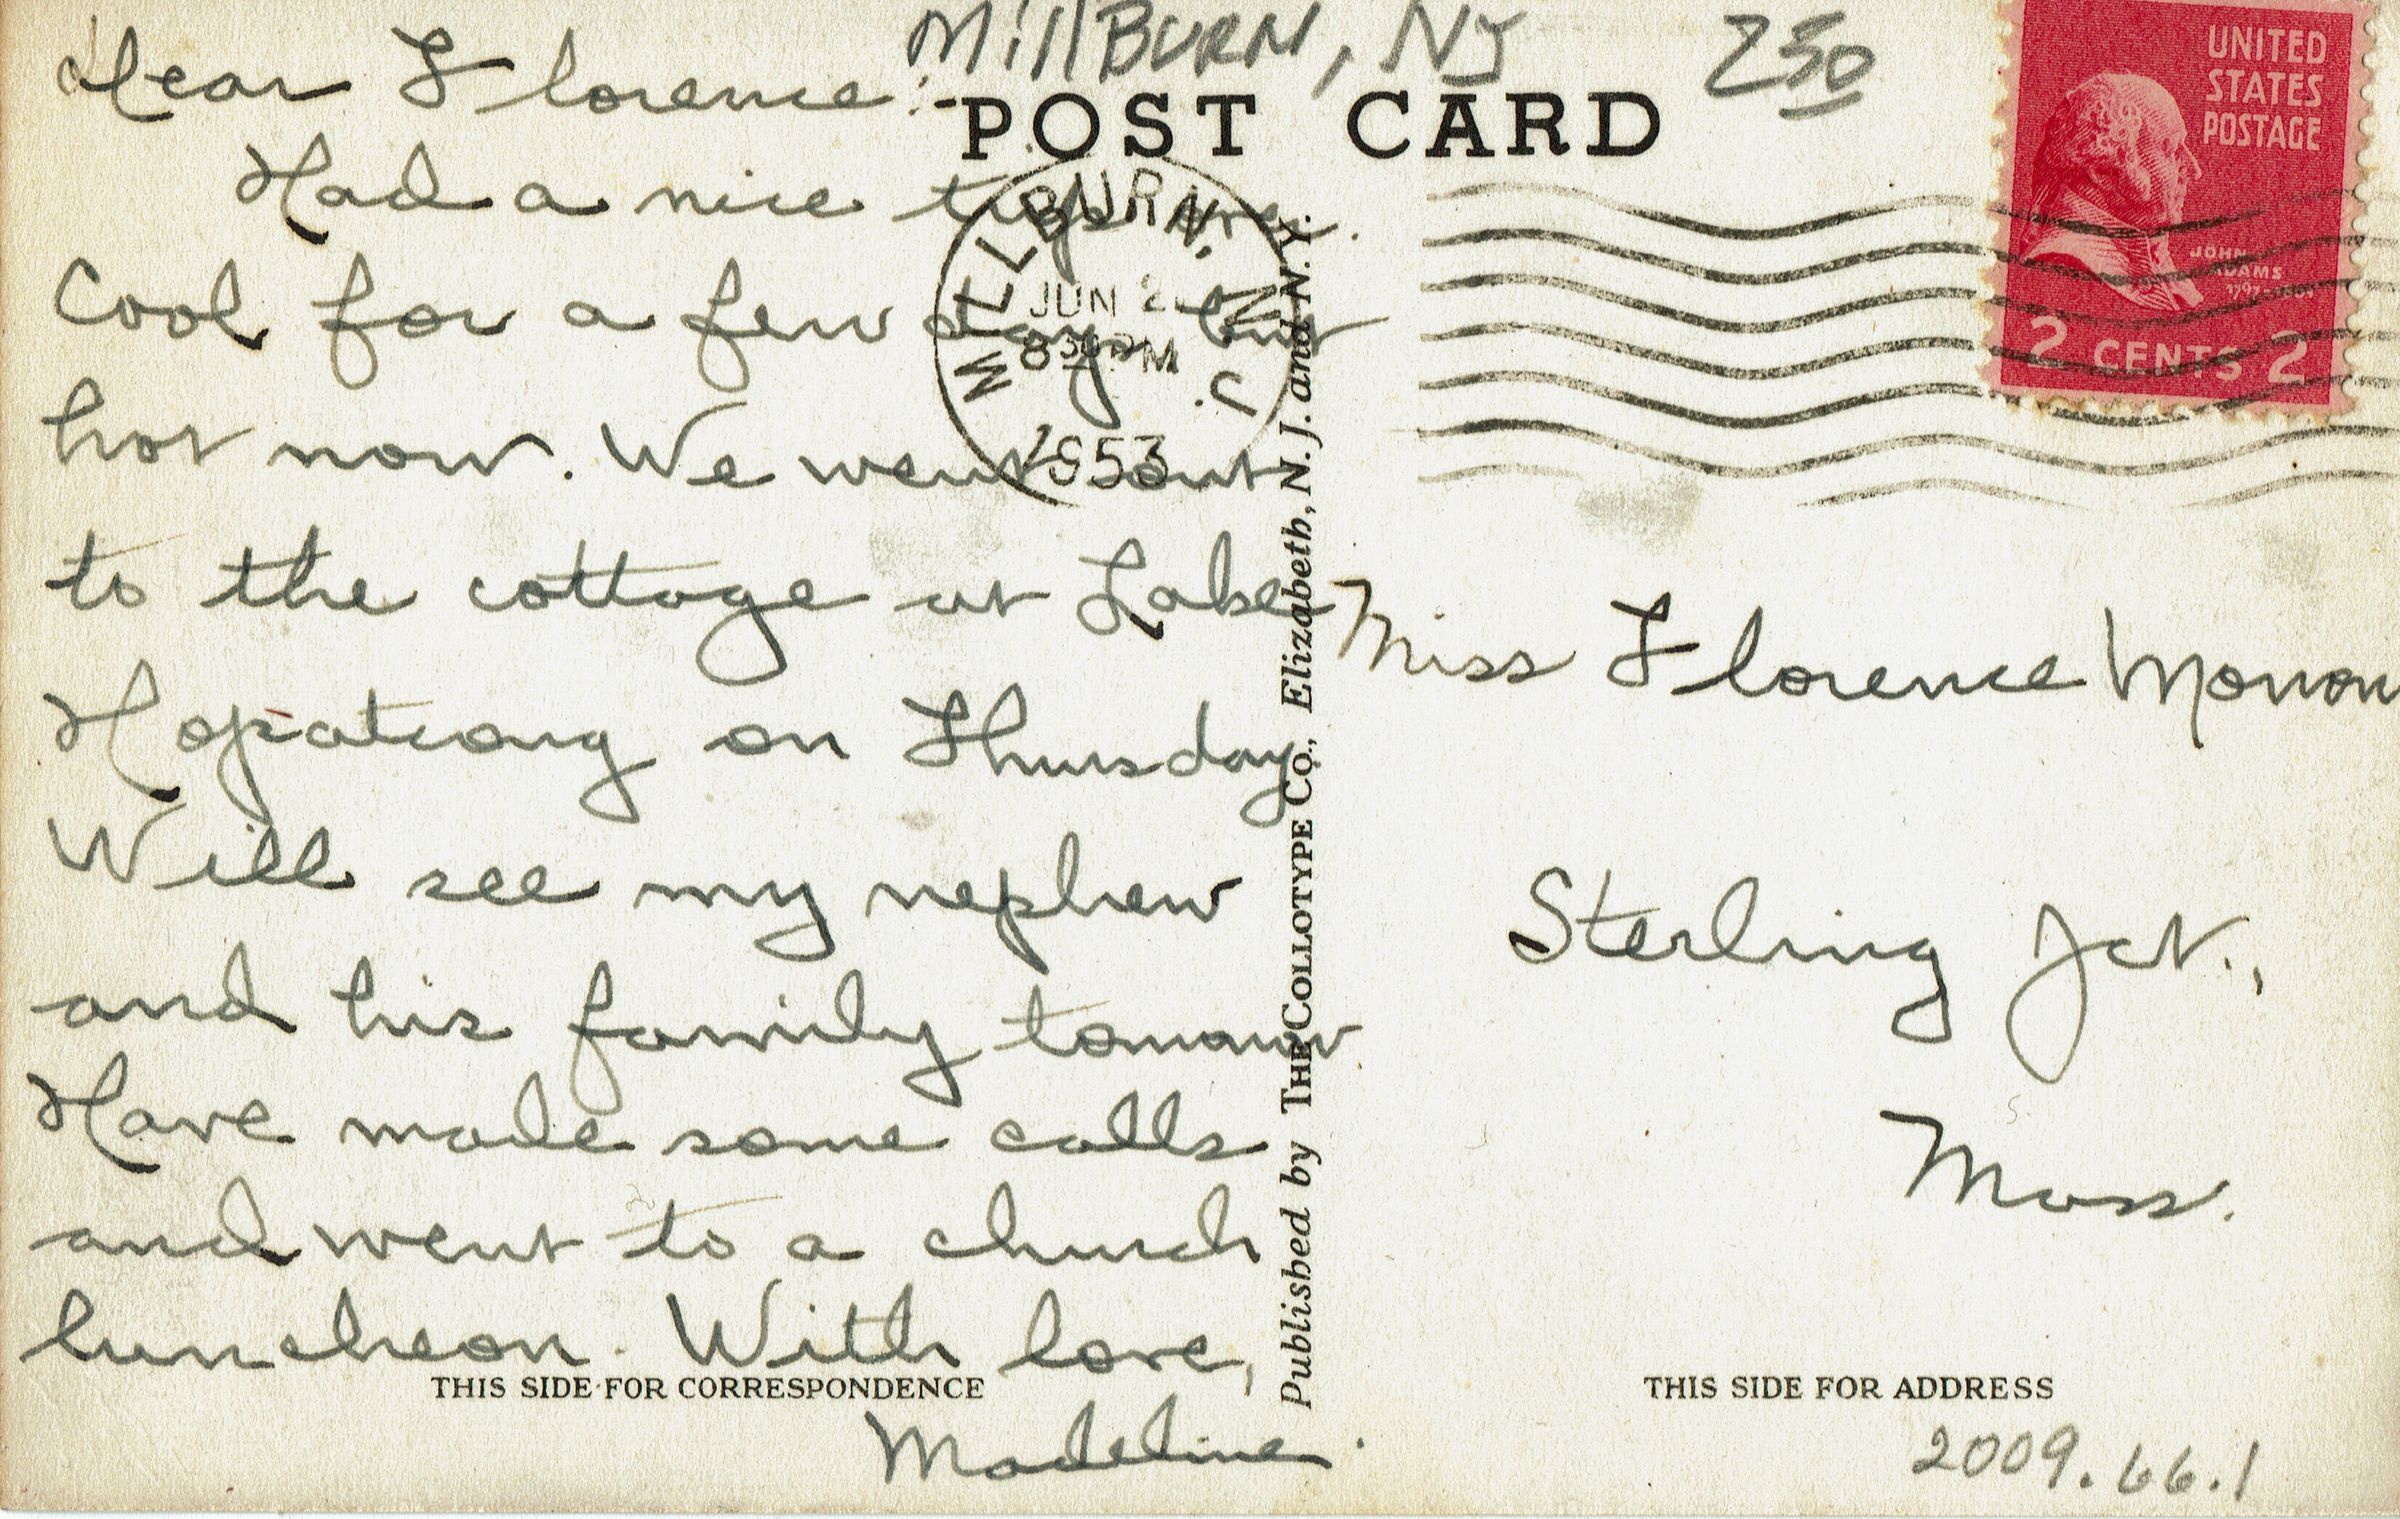 MillBURN, NJ 250
POST CARD
UNITED
STATES
POSTAGE
JOHN
ADAMS
2 CENTS 2
MILLBURN, N. J.
JUN 2
8 30 PM
1953
Dear Florence:-
Had a nice trip over.
Cool for a few days but
hot now. We went out
to the cottage at Lake
Hopatcong on Thursday.
Will see my nephew
and his family tomorrow
Have made some calls
and went to a church
luncheon. With love,
Madeline.
Published by THE COLLOTYPE CO., Elizabeth, N. J. and N. Y.
Miss Florence
Sterling Jct.,
Mass.
THIS SIDE FOR CORRESPONDENCE
THIS SIDE FOR ADDRESS
2009.66.1